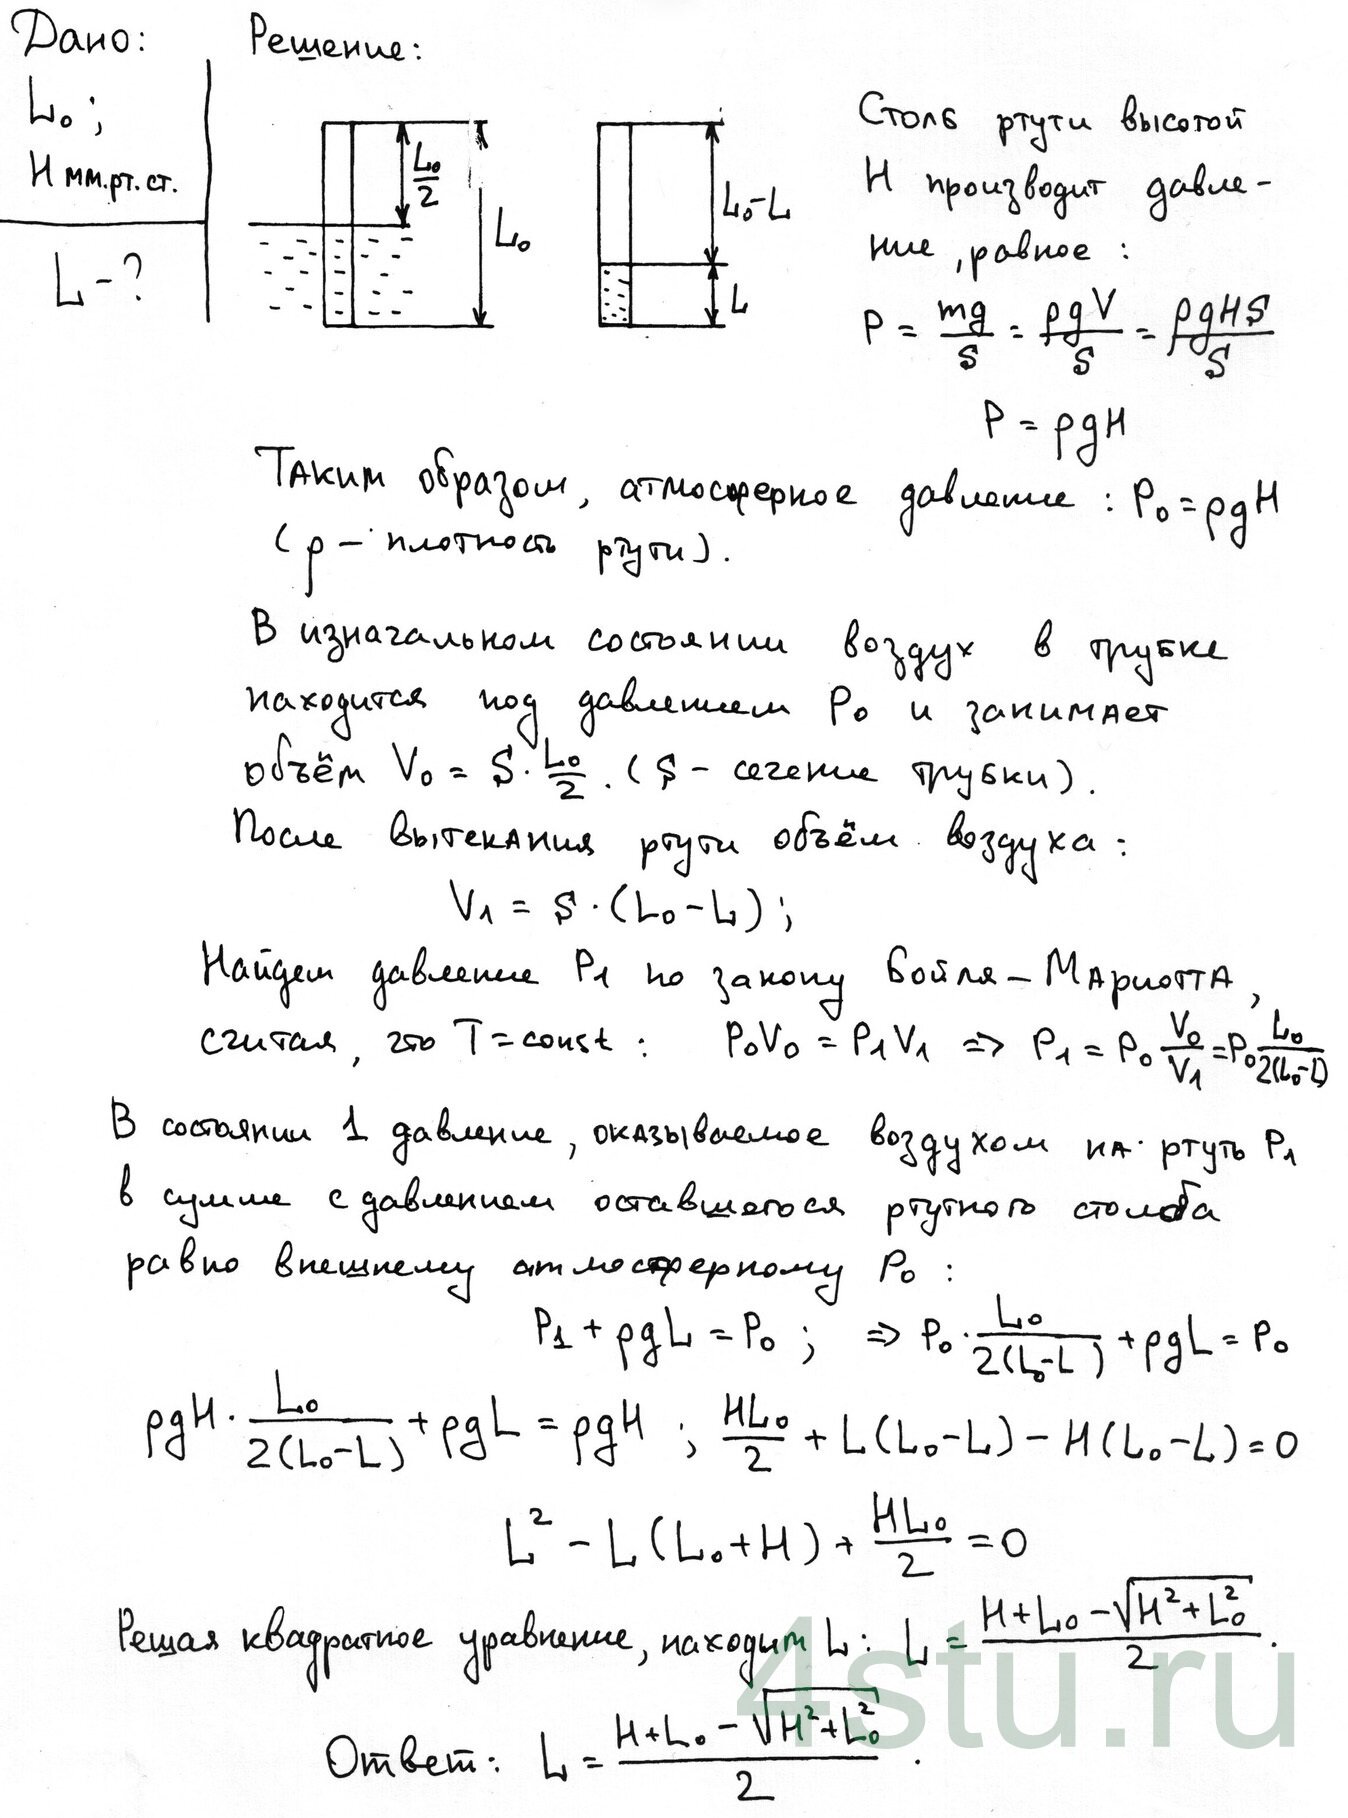 Дано:
L₀;
H мм.рт.ст.
L - ?
Решение:
L₀/2
L₀
L₀-L
L
Столб ртути высотой
H производит давле-
ние, равное:
P = mg/S = ρgV/S = ρgHS/S
P = ρgH
Таким образом, атмосферное давление: P₀ = ρgH
(ρ - плотность ртути).
В изначальном состоянии воздух в трубке
находится под давлением P₀ и занимает
объём V₀ = S · L₀/2. (S - сечение трубки).
После вытекания ртути объём воздуха:
V₁ = S · (L₀ - L);
Найдем давление P₁ по закону Бойля - Мариотта,
считая, что T = const: P₀V₀ = P₁V₁ => P₁ = P₀ V₀/V₁ = P₀ L₀/2(L₀-L)
В состоянии 1 давление, оказываемое воздухом на ртуть P₁
в сумме с давлением оставшегося ртутного столба
равно внешнему атмосферному P₀:
P₁ + ρgL = P₀; => P₀ · L₀/2(L₀-L) + ρgL = P₀
ρgH · L₀/2(L₀-L) + ρgL = ρgH; HL₀/2 + L(L₀-L) - H(L₀-L) = 0
L² - L(L₀+H) + HL₀/2 = 0
Решая квадратное уравнение, находим L: L = (H+L₀ - √(H²+L₀²))/2.
Ответ: L = (H+L₀ - √(H²+L₀²))/2.
4stu.ru